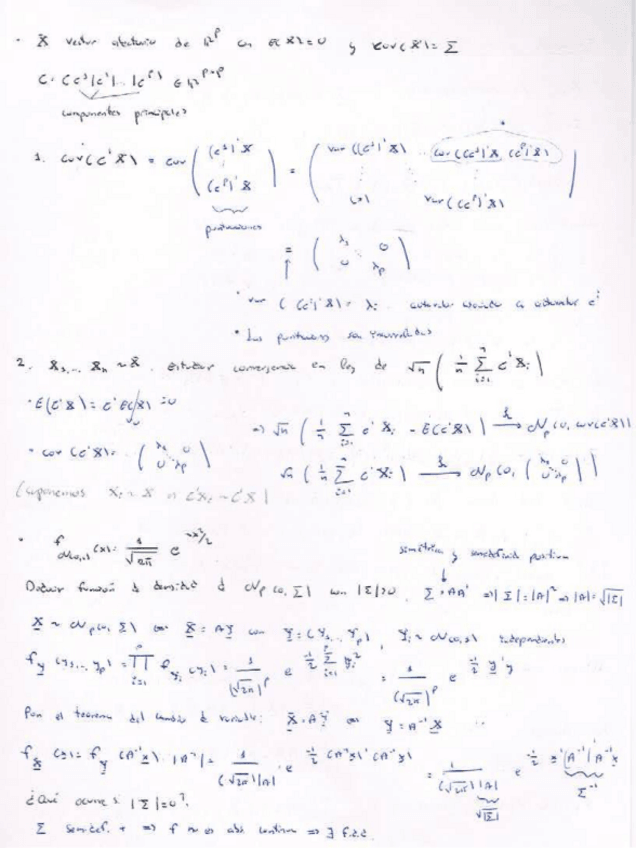 · X vector aleatorio de ℝᵖ con E(X)=0 y cov(X)=Σ
C=(c¹|c²|...|cᵖ) ∈ ℝᵖˣᵖ
componentes principales
1. cov(C'X) = cov ( (c¹)'X ⋮ (cᵖ)'X ) = ( var((c¹)'X) ... cov((c¹)'X, (cᵖ)'X) ⋮ var((cᵖ)'X) )
puntuaciones
= ( λ₁ 0 ⋱ 0 λₚ )
· var((cⁱ)'X) = λᵢ autovalor asociado a autovector cⁱ
· Las puntuaciones son incorreladas
2. X₁,... Xₙ ~ X. estudiar convergencia en ley de √n ( 1/n Σᵢ₌₁ⁿ C'Xᵢ )
· E(C'X) = C'E(X) = 0
⇒ √n ( 1/n Σᵢ₌₁ⁿ C'Xᵢ - E(C'X) ) → Nₚ(0, cov(C'X))
· cov(C'X) = ( λ₁ 0 ⋱ 0 λₚ )
√n ( 1/n Σ C'Xᵢ ) → Nₚ(0, ( λ₁ 0 ⋱ 0 λₚ ))
(suponemos Xᵢ ~ X ⇒ C'Xᵢ ~ C'X)
· f_N(0,1) (x) = 1/√2π e^(-x²/2)
simétrica y semidefinida positiva
Deducir función de densidad de Nₚ(0, Σ) con |Σ|>0. Σ = AA' ⇒ |Σ| = |A|² ⇒ |A| = √|Σ|
X ~ Nₚ(0, Σ) ⇔ X = AY con Y = (Y₁... Yₚ), Yᵢ ~ N(0,1) independientes
f_Y (y₁,... yₚ) = ∏ᵢ₌₁ᵖ f_Yᵢ (yᵢ) = 1/(√2π)ᵖ e^(-1/2 Σᵢ₌₁ᵖ yᵢ²) = 1/(√2π)ᵖ e^(-1/2 y'y)
Por el teorema del cambio de variable: X = AY ⇔ Y = A⁻¹X
f_X (x) = f_Y (A⁻¹x) |A⁻¹| = 1/(√2π)ᵖ|A| e^(-1/2 (A⁻¹x)'(A⁻¹x)) = 1/(√2π)ᵖ|A| e^(-1/2 x'(A⁻¹)'A⁻¹x)
√|Σ|
Σ⁻¹
¿Qué ocurre si |Σ|=0?
Σ semidef. + ⇒ f no es abs. continua ⇒ ∄ f.d.d.